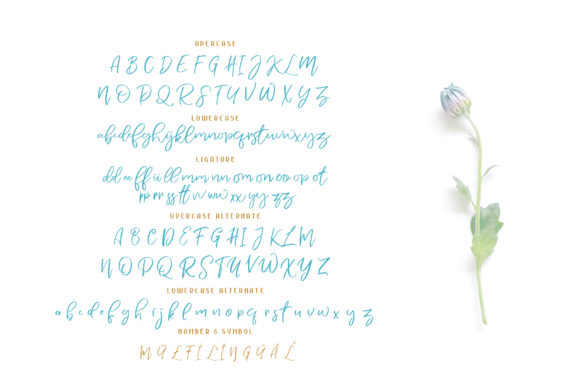 UPERCASE
A B C D E F G H I J K L M
N O P Q R S T U V W X Y Z
LOWERCASE
abcdefghijklmnopqrstuvwxyz
LIGATURE
dd ee ff ii ll mm nn om on oo op ot
pp rr ss tt vv ww xx yy zz
UPERCASE ALTERNATE
A B C D E F G H I J K L M
N O P Q R S T U V W X Y Z
LOWERCASE ALTERNATE
a b c d e f g h i j k l m n o p q r s t u v w x y z
NUMBER & SYMBOL
MULTILINGUAL